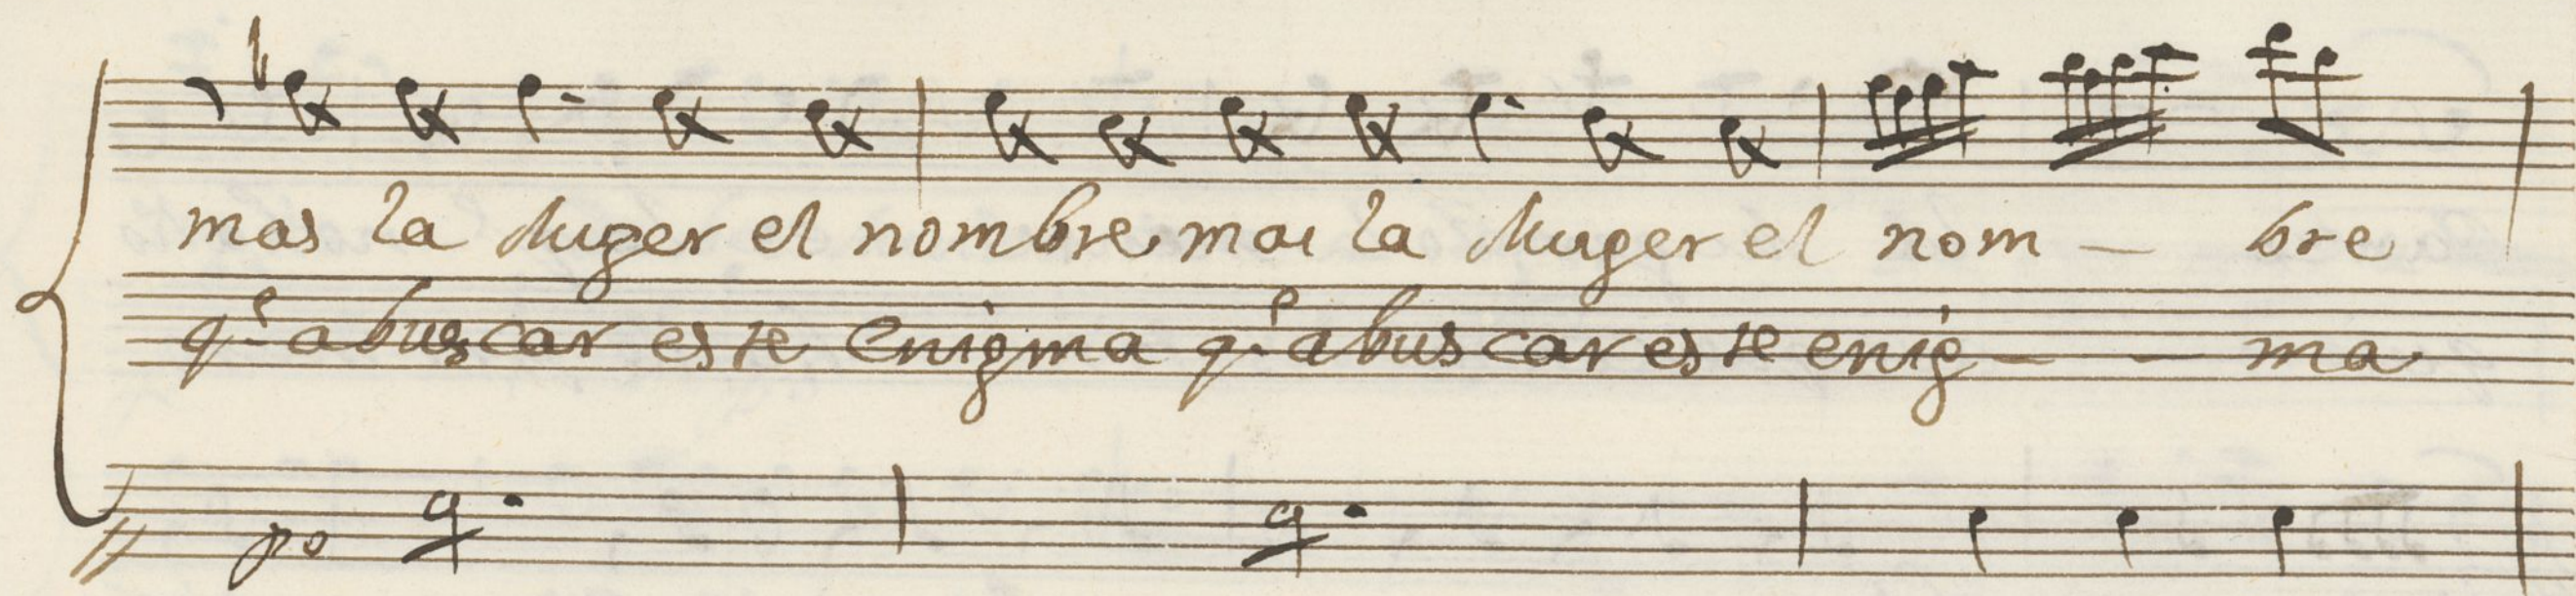 mas la Muger el nombre mas la Muger el nom - bre
q.e a buscar este Enigma q.e a buscar este enig - - ma
po